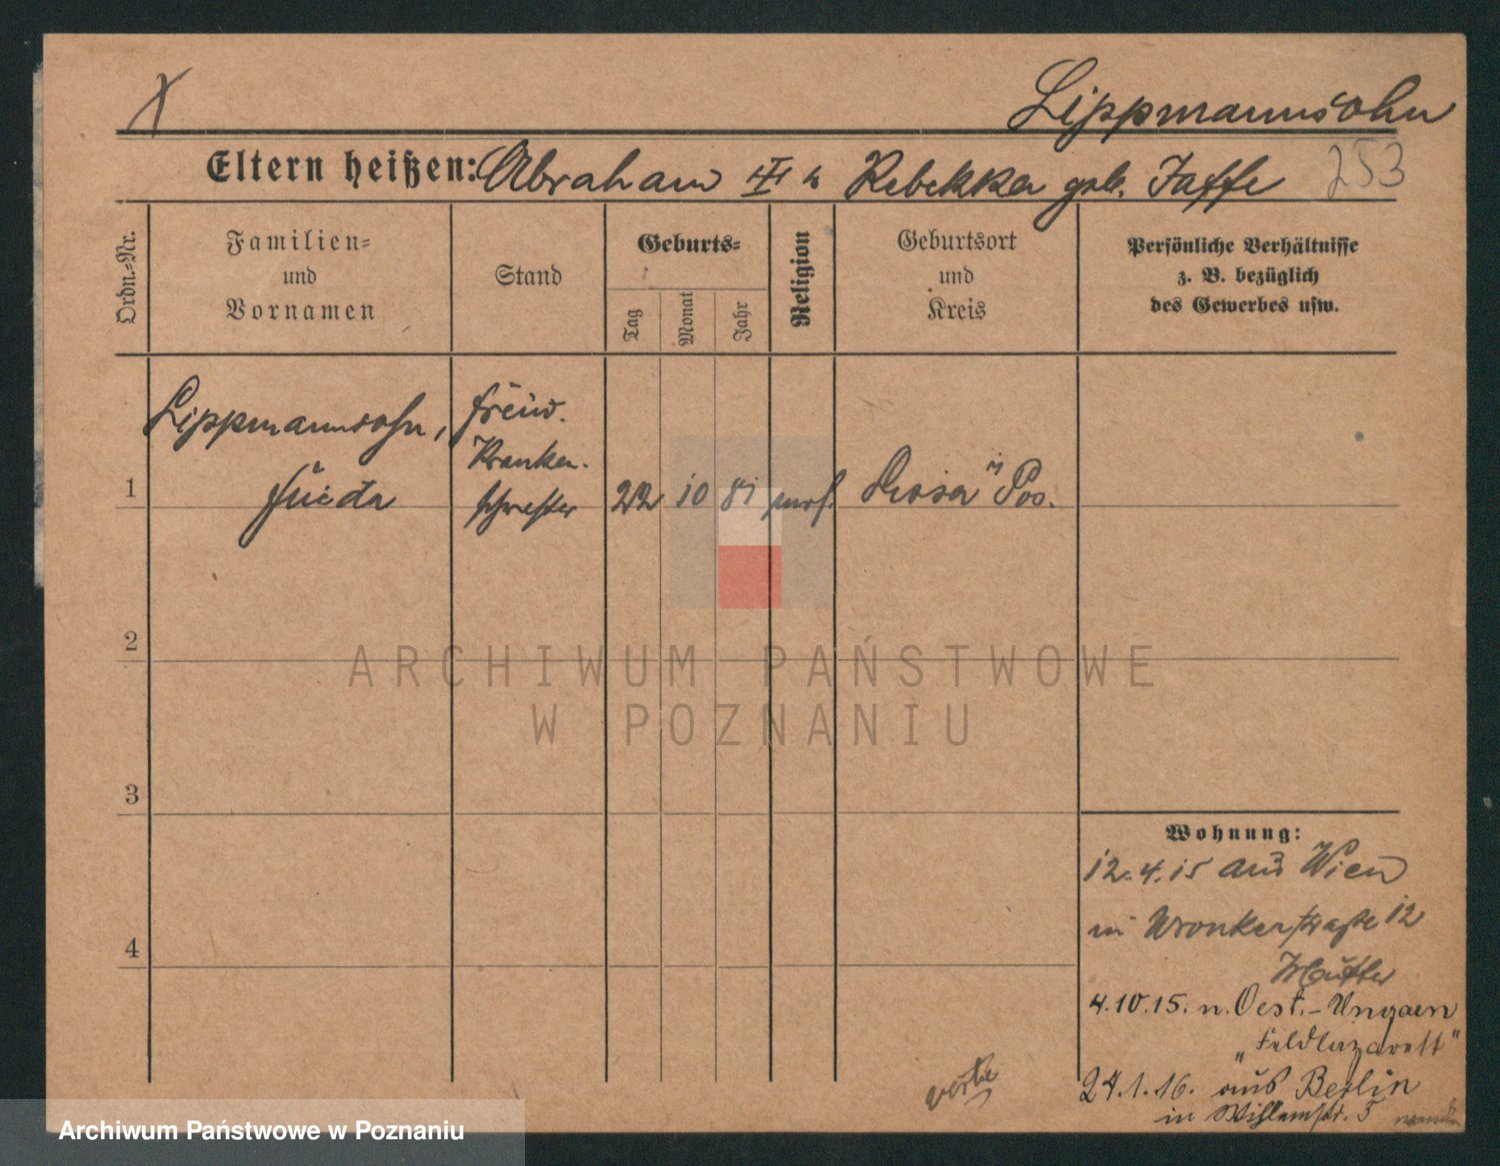 Lippmannsohn
Eltern heißen: Abraham u Rebekka geb. Jaffe 253
Ordn.=Nr.
Familien=
und
Vornamen
Stand
Geburts=
Tag
Monat
Jahr
Religion
Geburtsort
und
Kreis
Persönliche Verhältnisse
z. B. bezüglich
des Gewerbes usw.
Lippmannsohn,
Frieda
freiw.
Kranken-
schwester
1
22 10 81
mos.
Lissa i/Pos.
2
3
4
ARCHIWUM PAŃSTWOWE
W POZNANIU
Wohnung:
12.4.15 aus Wien
in Wronkerstraße 12
Mutter
4.10.15. n. Oest.-Ungarn
„Feldlazarett"
24.1.16. aus Berlin
in Wilhelmstr. 5
Archiwum Państwowe w Poznaniu